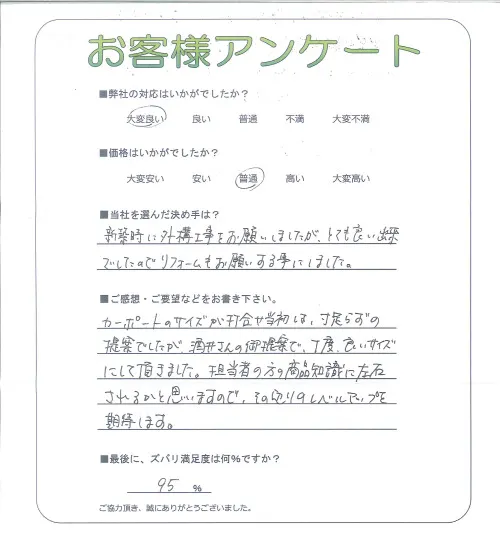 お客様アンケート
■弊社の対応はいかがでしたか？
大変良い 良い 普通 不満 大変不満
■価格はいかがでしたか？
大変安い 安い 普通 高い 大変高い
■当社を選んだ決め手は？
新築時に外構工事をお願いしましたが、とても良い出来
でしたのでリフォームもお願いする事にしました。
■ご感想・ご要望などをお書き下さい。
カーポートのサイズが打合せ当初は、寸足らずの
提案でしたが、酒井さんの御提案で、丁度、良いサイズ
にして頂きました。担当者の方の商品知識に左右
されるかと思いますので、その辺りのレベルアップを
期待します。
■最後に、ズバリ満足度は何％ですか？
95 ％
ご協力頂き、誠にありがとうございました。